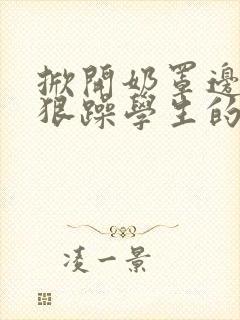 掀開奶罩邊
狠躁學生的
淩一景